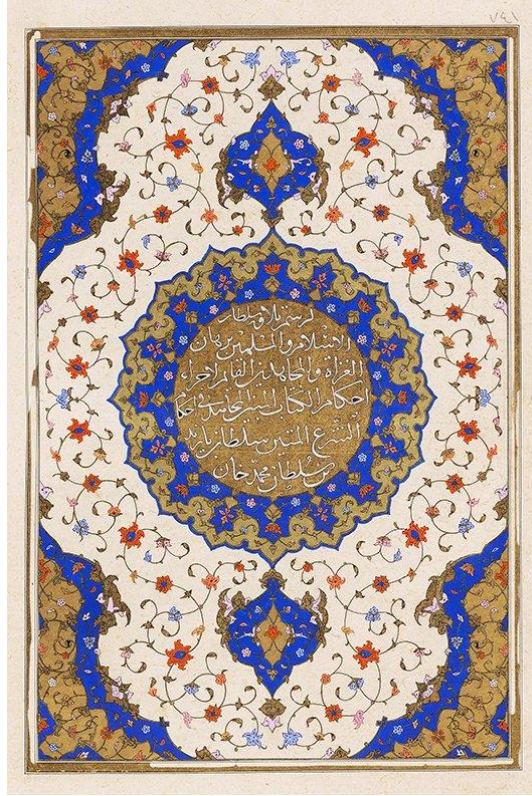 ٧٤١
برسم تلاوة سلطان
الاسلام والمسلمين برهان
الغزاة والمجاهدين القائم لاجراء
احكام الكتاب المبين المجاهد في
الشرع المتين سلطان بايزيد
بن سلطان محمد خان